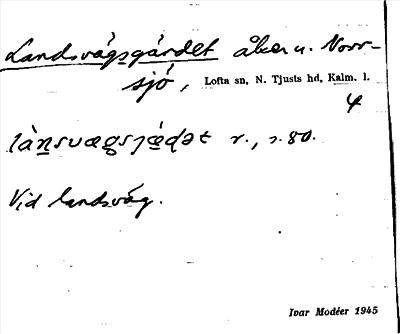 Landsvägsgärdet åker u. Norr-
sjö, Lofta sn, N. Tjusts hd, Kalm. l.
4
r., s. 80.
Vid landsväg.
Ivar Modéer 1945